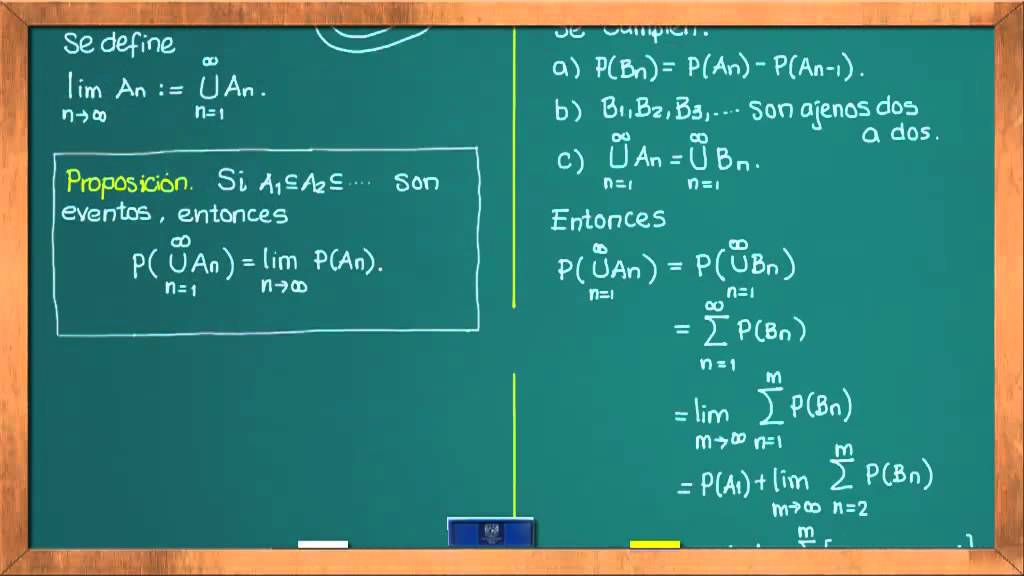 Se define
lim An := ∪ An.
n→∞ n=1 ∞
Proposición. Si A1⊆A2⊆···· son
eventos, entonces
P( ∞∪n=1 An) = lim n→∞ P(An).
Se cumplen:
a) P(Bn)= P(An)- P(An-1).
b) B1,B2,B3,···· son ajenos dos
a dos.
c) ∞∪n=1 An = ∞∪n=1 Bn.
Entonces
P( ∞∪n=1 An) = P( ∞∪n=1 Bn)
= ∞∑n=1 P(Bn)
= lim m→∞ m∑n=1 P(Bn)
= P(A1)+ lim m→∞ m∑n=2 P(Bn)